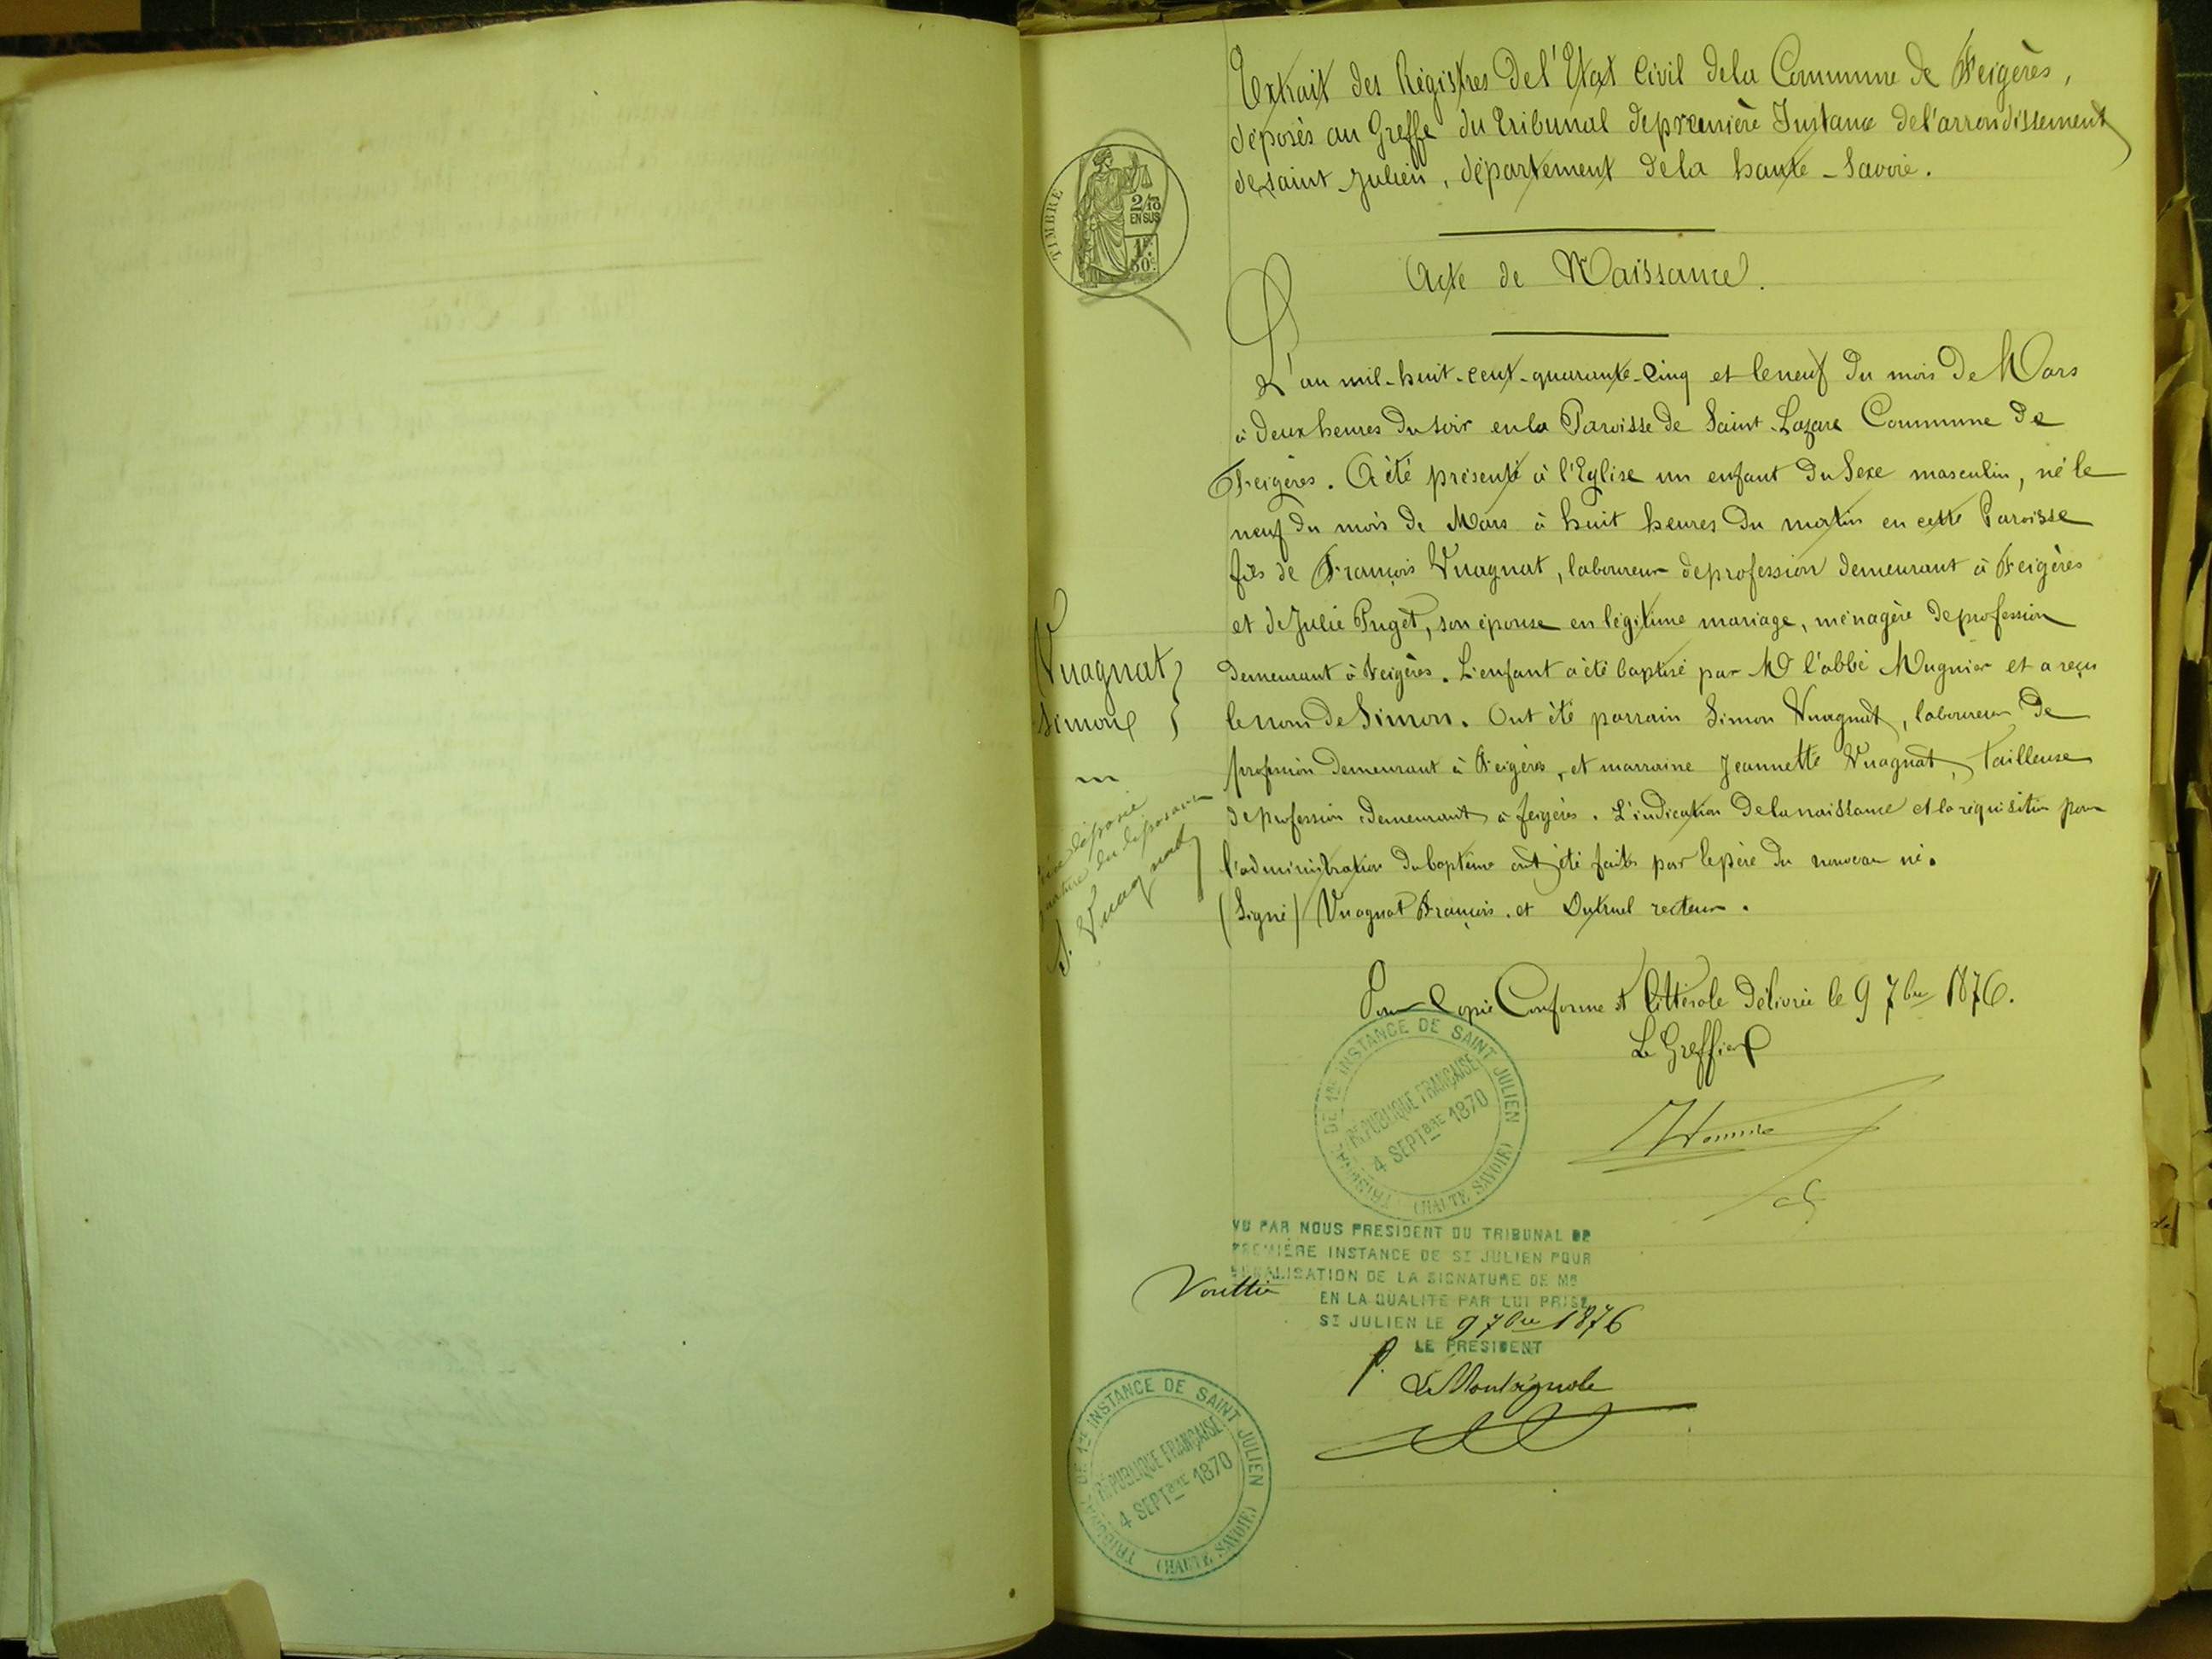 Extrait des Régistres de l'Etat Civil de la Commune de Feigères,
déposés au Greffe du Tribunal de première Instance de l'arrondissement
de saint Julien, département de la haute-Savoie.
TIMBRE
2/10
EN SUS
1F.
50c.
Acte de Naissance.
L'an mil-huit-cent-quarante-Cinq et le neuf du mois de Mars
à deux heures du soir en la Paroisse de Saint-Lazare Commune de
Feigères. A été présenté à l'Eglise un enfant du Sexe masculin, né le
neuf du mois de Mars à huit heures du matin en cette Paroisse
fils de François Vuagnat, laboureur de profession demeurant à Feigères
et de Julie Puget, son épouse en légitime mariage, ménagère de profession
demeurant à Feigères. L'enfant a été baptisé par Mr l'abbé Mugnier et a reçu
le nom de Simon. Ont été parrain Simon Vuagnat, laboureur de
profession demeurant à Feigères, et marraine Jeannette Vuagnat, Tailleuse
de profession demeurant à feigères. L'indication de la naissance et la réquisition pour
l'administration du baptême ont été faites par le père du nouveau né.
(Signé) Vuagnat François. et Dutruel recteur.
Vuagnat
Simon
déposée
du déposant
S. Vuagnat
Pour Copie Conforme et littérale délivrée le 9 7bre 1876.
Le Greffier
TRIBUNAL DE 1RE INSTANCE DE SAINT JULIEN
(HAUTE SAVOIE)
RÉPUBLIQUE FRANÇAISE
4 SEPTBRE 1870
VU PAR NOUS PRESIDENT DU TRIBUNAL DE
PREMIÈRE INSTANCE DE ST JULIEN POUR
LEGALISATION DE LA SIGNATURE DE ME
EN LA QUALITE PAR LUI PRISE
ST JULIEN LE 9 7bre 1876
LE PRESIDENT
P.
TRIBUNAL DE 1RE INSTANCE DE SAINT JULIEN
(HAUTE SAVOIE)
RÉPUBLIQUE FRANÇAISE
4 SEPTBRE 1870